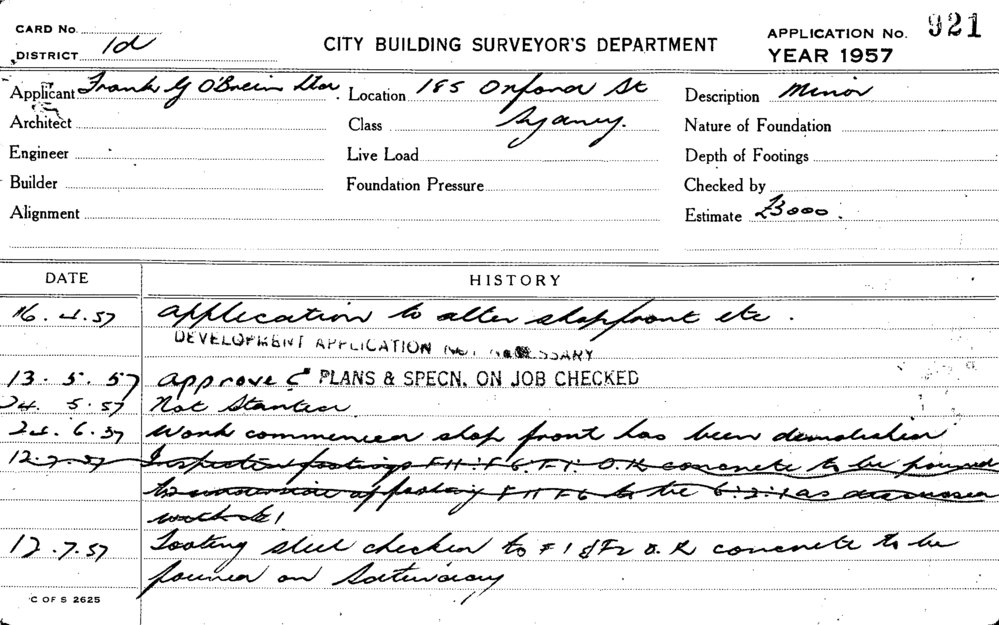 CARD No.
DISTRICT 1d
CITY BUILDING SURVEYOR'S DEPARTMENT
APPLICATION No. 921
YEAR 1957
Applicant Frank G O'Brein Ltd. Location 185 Oxford St Description Minor
Architect Class Sydney. Nature of Foundation
Engineer Live Load Depth of Footings
Builder Foundation Pressure Checked by
Alignment Estimate £3000.
DATE HISTORY
16.4.57 Application to alter shopfront etc.
DEVELOPMENT APPLICATION NOT NECESSARY
13.5.57 Approved PLANS & SPECN. ON JOB CHECKED
24.5.57 Not Started
24.6.57 Work commenced shop front has been demolished
12.7.57 Inspected footings O.K concrete to be poured
to underside of footing to be as discussed
12.7.57 Footing steel checked to F1 & F2 O.K concrete to be
poured on Saturday
C OF S 2625